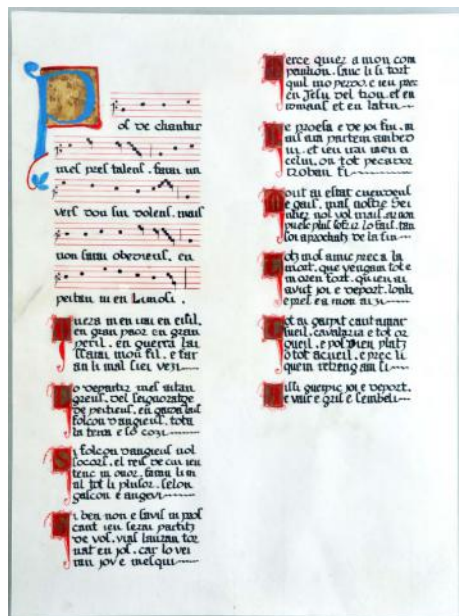 Pos de chantar
mes pres talens. farai un
vers don sui dolens. mais
non serai obediens. en
peitau ni en Limosi.
Quera men irai en eisil.
en gran paor en gran
peril. en guerra lai
ssarai mon fil. e far
an li mal siei vezi
Lo departir mes aitan
greus. del seignoratge
de peitieus. en garda lais
folcon dangieus. tota
la terra e so cozi
Si folcon dangieus nol
socors. el reis de cui ieu
tenc m onor. faran li m
al tot li plusor. felon
gascon e angevi
Si ben non e savis ni pros
cant ieu serai partitz
de vos. vias lauran tor
nat en jos. car lo vei
ran jove mesqui
Merce quier a mon com
panhon. sanc li fi tort
quil mo perdo. e ieu prec
en Jesu del tron. et en
romans et en latin
De proesa e de joi fui. m
ais ara partem ambedu
i. et ieu irai men a
celui. on tot pecador
troban fi
Mout ai estat cuendeus
e gais. mas nostre Sei
nol vol mais. ar non
lo fais. tan
soi aprochatz de la fin
Totz mos amics prec a la
mort. que vengan tot e
m oren fort. quieu ai
avut joi e deport. lonh
e pres
Tot ai guerpit cant amar
sueil. cavalaria e tot or
gueil. e pos dieu platz
o tot acueil. e prec li
quem retengam si
Aissi guerpic joi e deport.
e vair e gris e sembeli